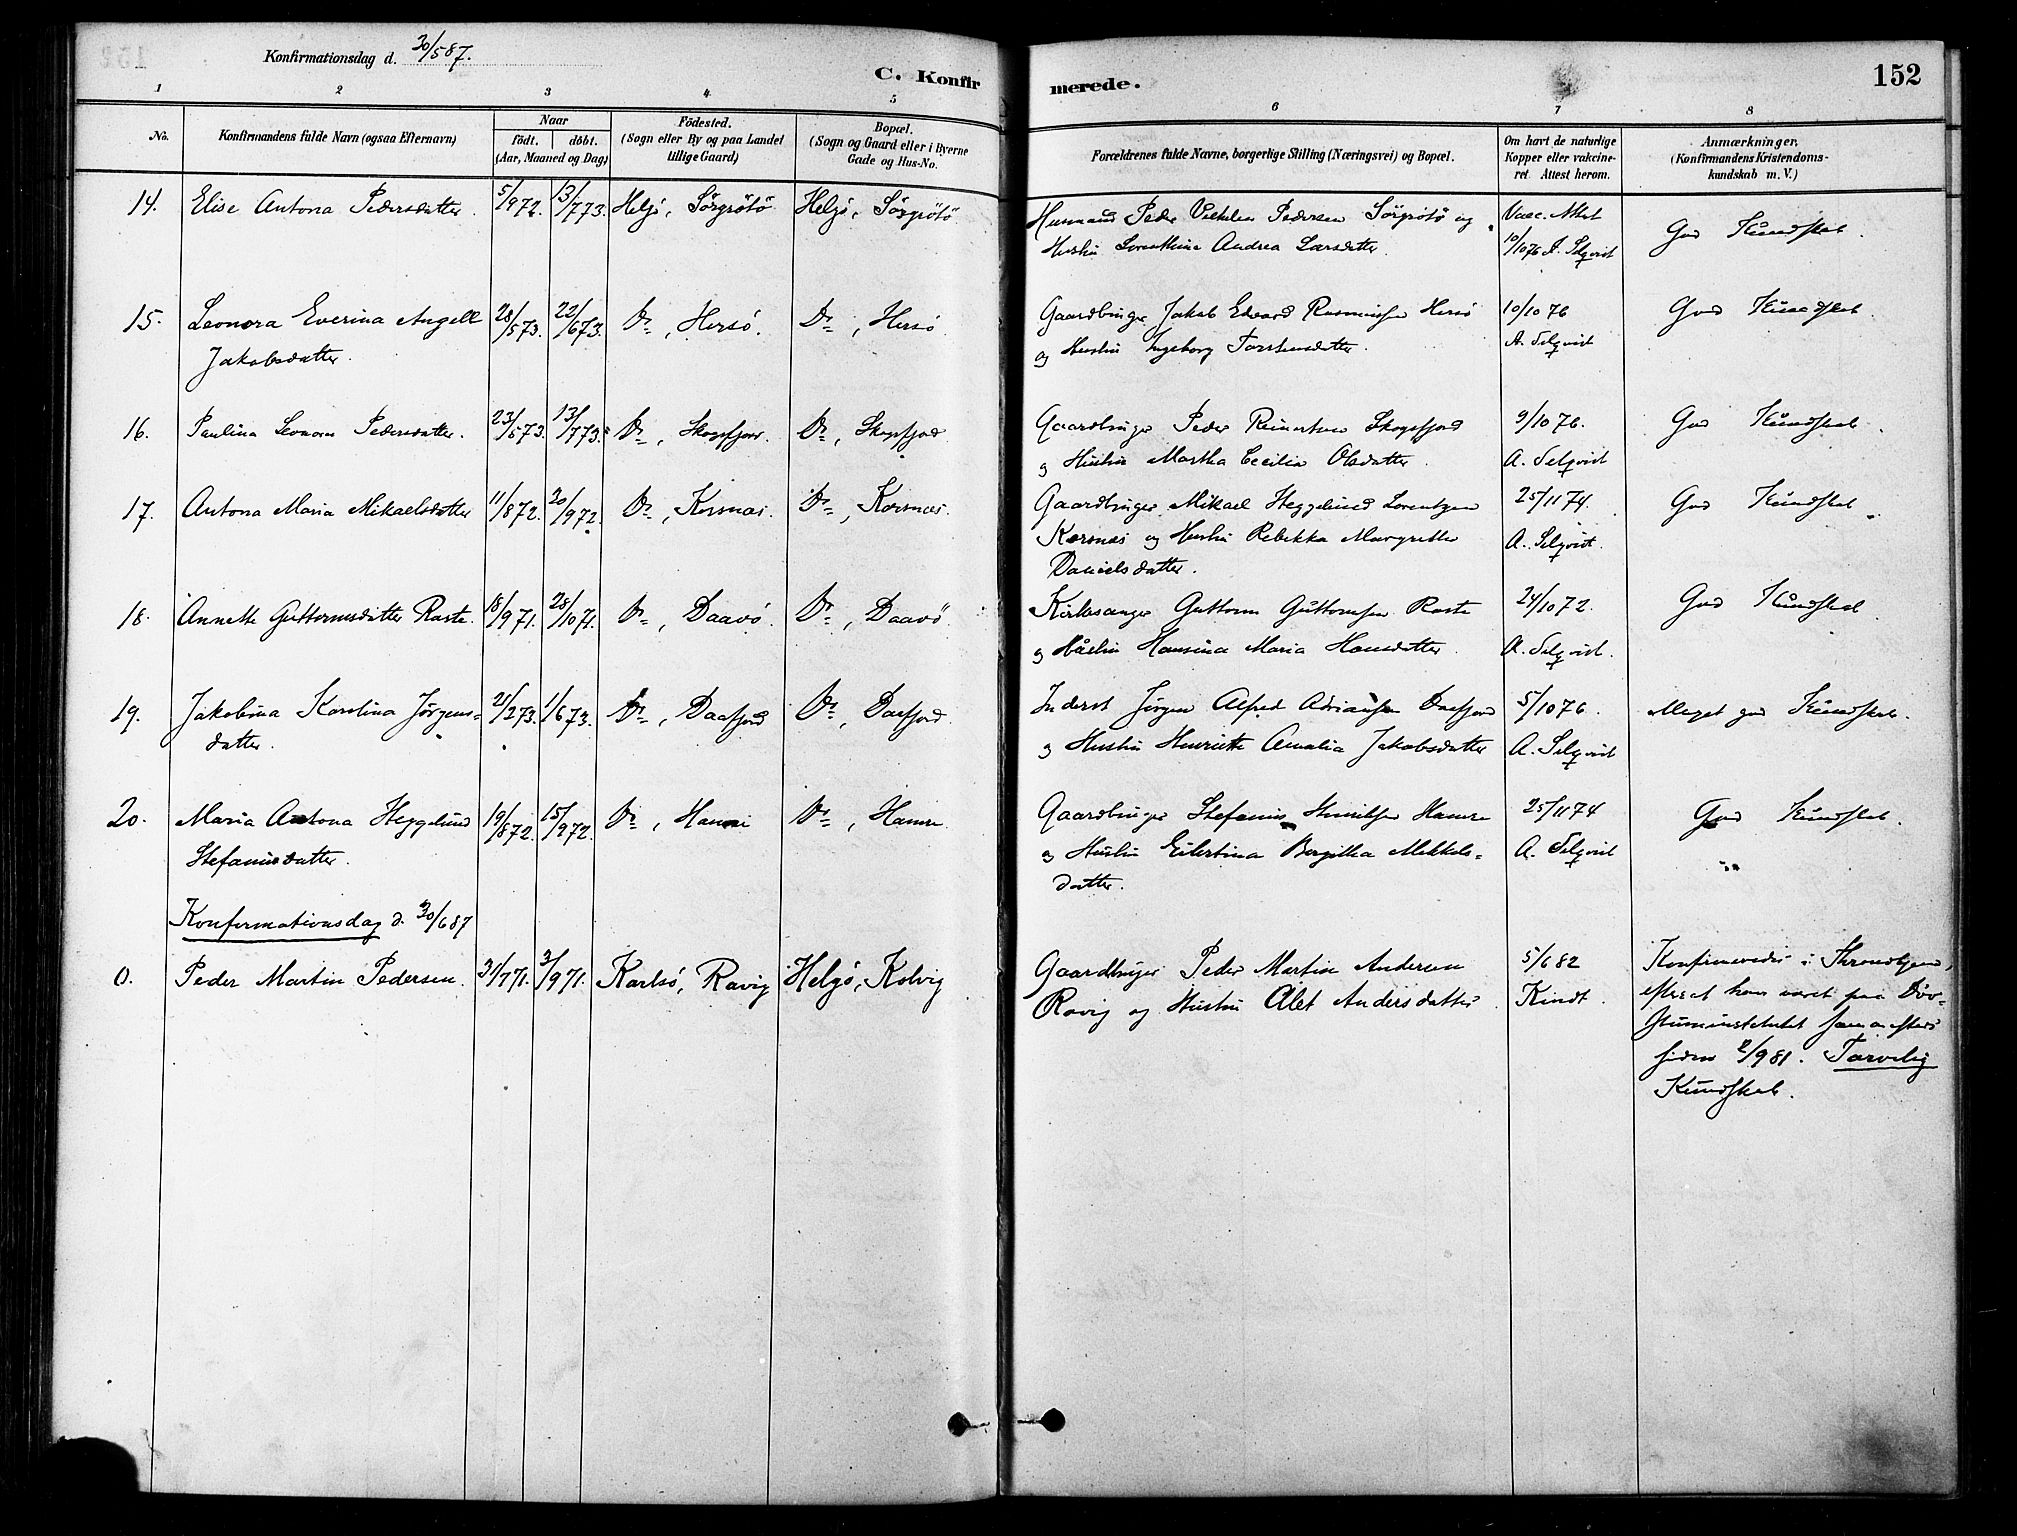 Konfirmationsdag d. 30/5 87.
C. Konfirmerede.
152
1 2 3 4 5 6 7 8
No.
Konfirmandens fulde Navn (ogsaa Efternavn)
Naar
födt. döbt.
(Aar, Maaned og Dag)
Födested.
(Sogn eller By og paa Landet
tillige Gaard)
Bopæl.
(Sogn og Gaard eller i Byerne
Gade og Hus-No.
Forældrenes fulde Navne, borgerlige Stilling (Næringsvei) og Bopæl.
Om havt de naturlige
Kopper eller vakcine-
ret. Attest herom.
Anmærkninger.
(Konfirmandens Kristendoms-
kundskab m. V.)
14. Elise Antona Pedersdatter. 5/9 72. 13/7 73. Helgö, Sörgrötö Helgö, Sörgrötö
Husmand Peder Pedersen Sörgrötö og
Hustru Andrea Larsdatter.
Vacc. Attest
10/10 76 A. Selqvist
God Kundskab.
15. Leonora Everina Angell 28/5 73. 22/6 73. Do, Hersö. Do, Hersö
Jakobsdatter.
Gaardbruger Jakob Edvard Rasmussen Hersö
og Hustru Ingeborg Torstensdatter.
10/10 76
A. Selqvist
God Kundskab.
16. Paulina Leonora Pedersdatter. 23/5 73. 13/7 73. Do, Skogsfjord. Do, Skogsfjord
Gaardbruger Peder Reinertsen Skogsfjord
og Hustru Martha Cecilia Olsdatter.
9/10 76.
A. Selqvist
God Kundskab.
17. Antona Maria Mikaelsdatter 11/8 72. 20/9 72. Do, Korsnæs. Do, Korsnæs.
Gaardbruger Mikael Heggelund Lorentzen
Korsnæs og Hustru Rebekka Margrethe
Danielsdatter.
25/11 74.
A. Selqvist.
God Kundskab.
18. Annette Guttormsdatter Raste. 18/9 71. 28/10 71. Do, Daavö. Do, Daavö
Kirkesanger Guttorm Guttormsen Raste
og Hustru Hansina Maria Hansdatter.
24/10 72.
A. Selqvist.
God Kundskab.
19. Jakobina Karolina Jörgens- 21/2 73. 1/6 73. Do, Daafjord Do, Daafjord.
datter.
Inderst Jörgen Alfred Adriansen Daafjord
og Hustru Henriette Amalia Jakobsdatter
5/10 76.
A. Selqvist
Meget god Kundskab.
20. Maria Antona Heggelund 19/8 72. 15/9 72. Do, Hamre Do, Hamre
Stefanusdatter.
Gaardbruger Stefanus Hamre
og Hustru Eilertina Bergitha Mikkels-
datter.
25/11 74
A. Selqvist
God Kundskab.
Konfirmationsdag d. 30/6 87
0. Peder Martin Pedersen. 31/7 71. 3/9 71. Karlsö, Ravig Helgö, Kolvig
Gaardbruger Peder Martin Andersen
Ravig og Hustru Alet Andersdatter.
5/6 82
Kindt.
Konfirmeredes i Throndhjem,
efterat have været paa Döv-
stuminstitutet
siden 2/9 81. Tarvelig
Kundskab.